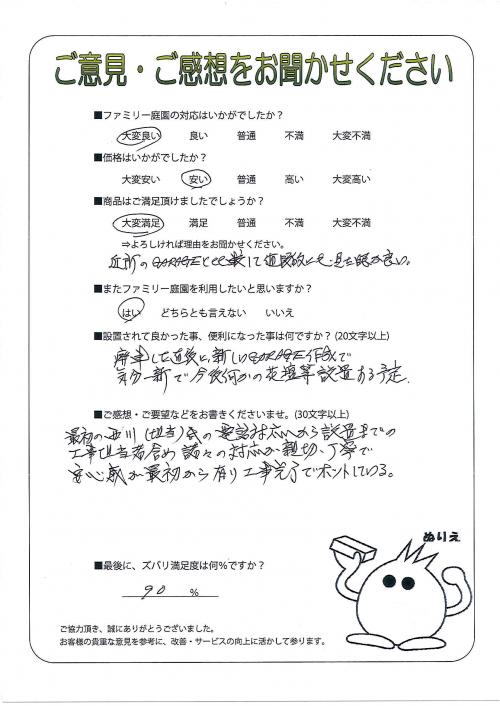 ご意見・ご感想をお聞かせください
■ファミリー庭園の対応はいかがでしたか？
大変良い 良い 普通 不満 大変不満
■価格はいかがでしたか？
大変安い 安い 普通 高い 大変高い
■商品はご満足頂けましたでしょうか？
大変満足 満足 普通 不満 大変不満
⇒よろしければ理由をお聞かせください。
近所のGARAGEと比較して道路的にも見た感が良い。
■またファミリー庭園を利用したいと思いますか？
はい どちらとも言えない いいえ
■設置されて良かった事、便利になった事は何ですか？(20文字以上)
した直後に、新しいGARAGE で
気分一新で今後何かの花壇等設置する予定
■ご感想・ご要望などをお書きくださいませ。(30文字以上)
最初の西川(担当)氏の電話対応から設置までの
工事担当者含め諸々の対応が親切、丁寧で
安心感が最初から有り工事完了でホットしている。
■最後に、ズバリ満足度は何%ですか？
90 %
ぬりえ
ご協力頂き、誠にありがとうございました。
お客様の貴重な意見を参考に、改善・サービスの向上に活かして参ります。